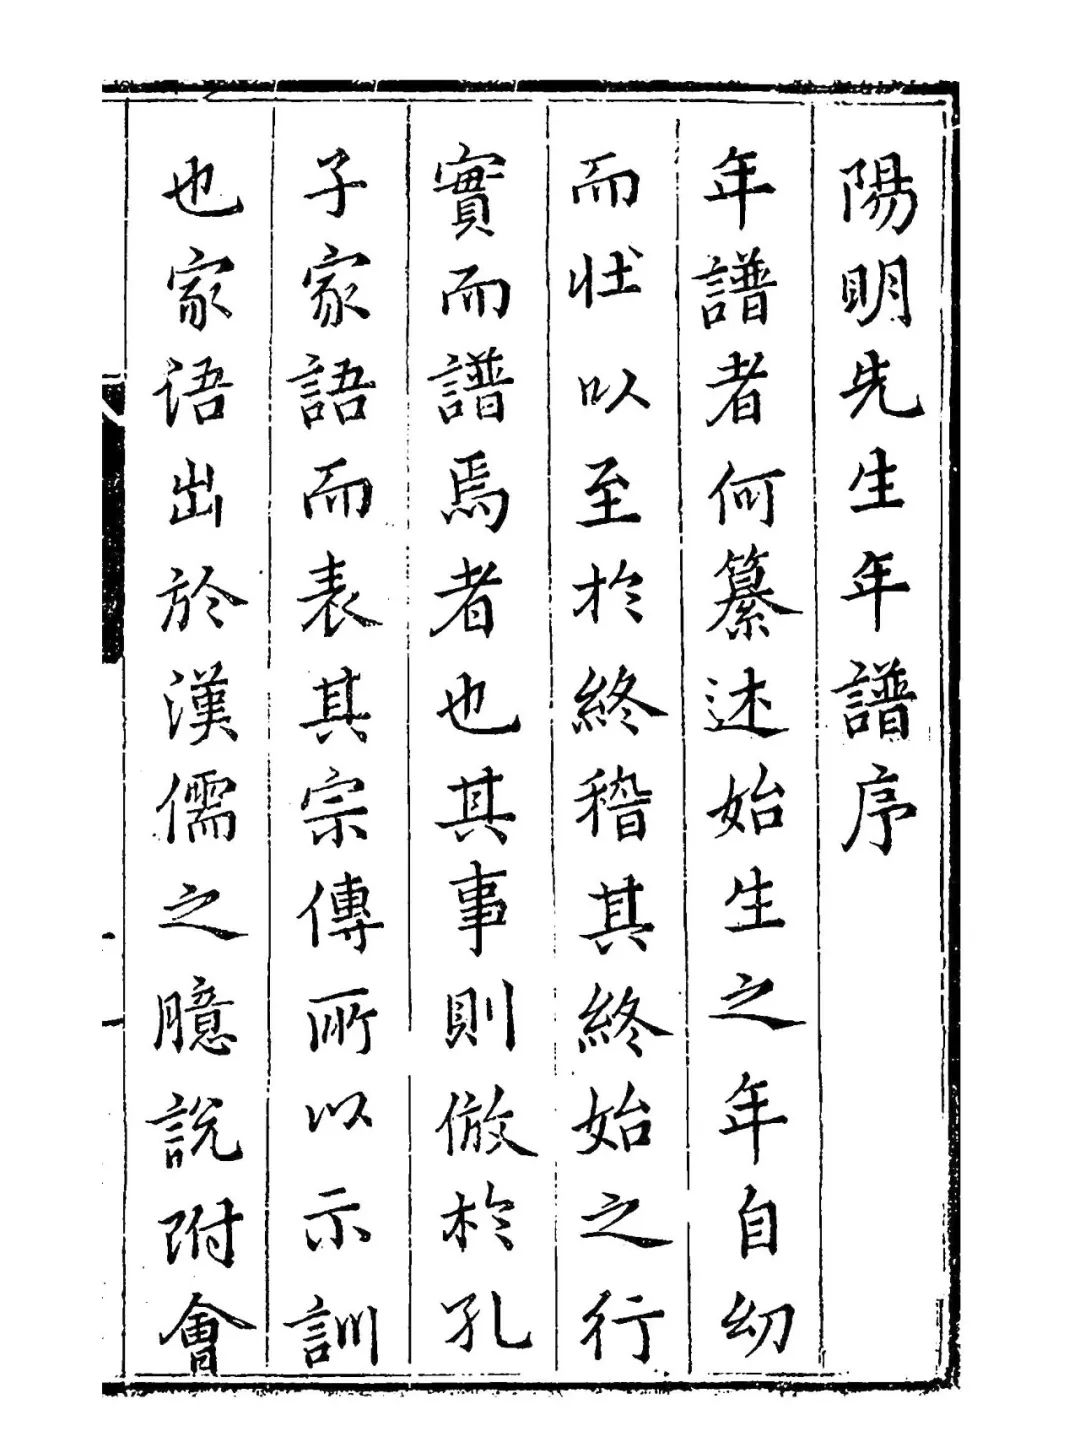 陽明先生年譜序
年譜者何纂述始生之年自幼
而壯以至於終稽其終始之行
實而譜焉者也其事則倣於孔
子家語而表其宗傳所以示訓
也家语出於漢儒之臆說附會